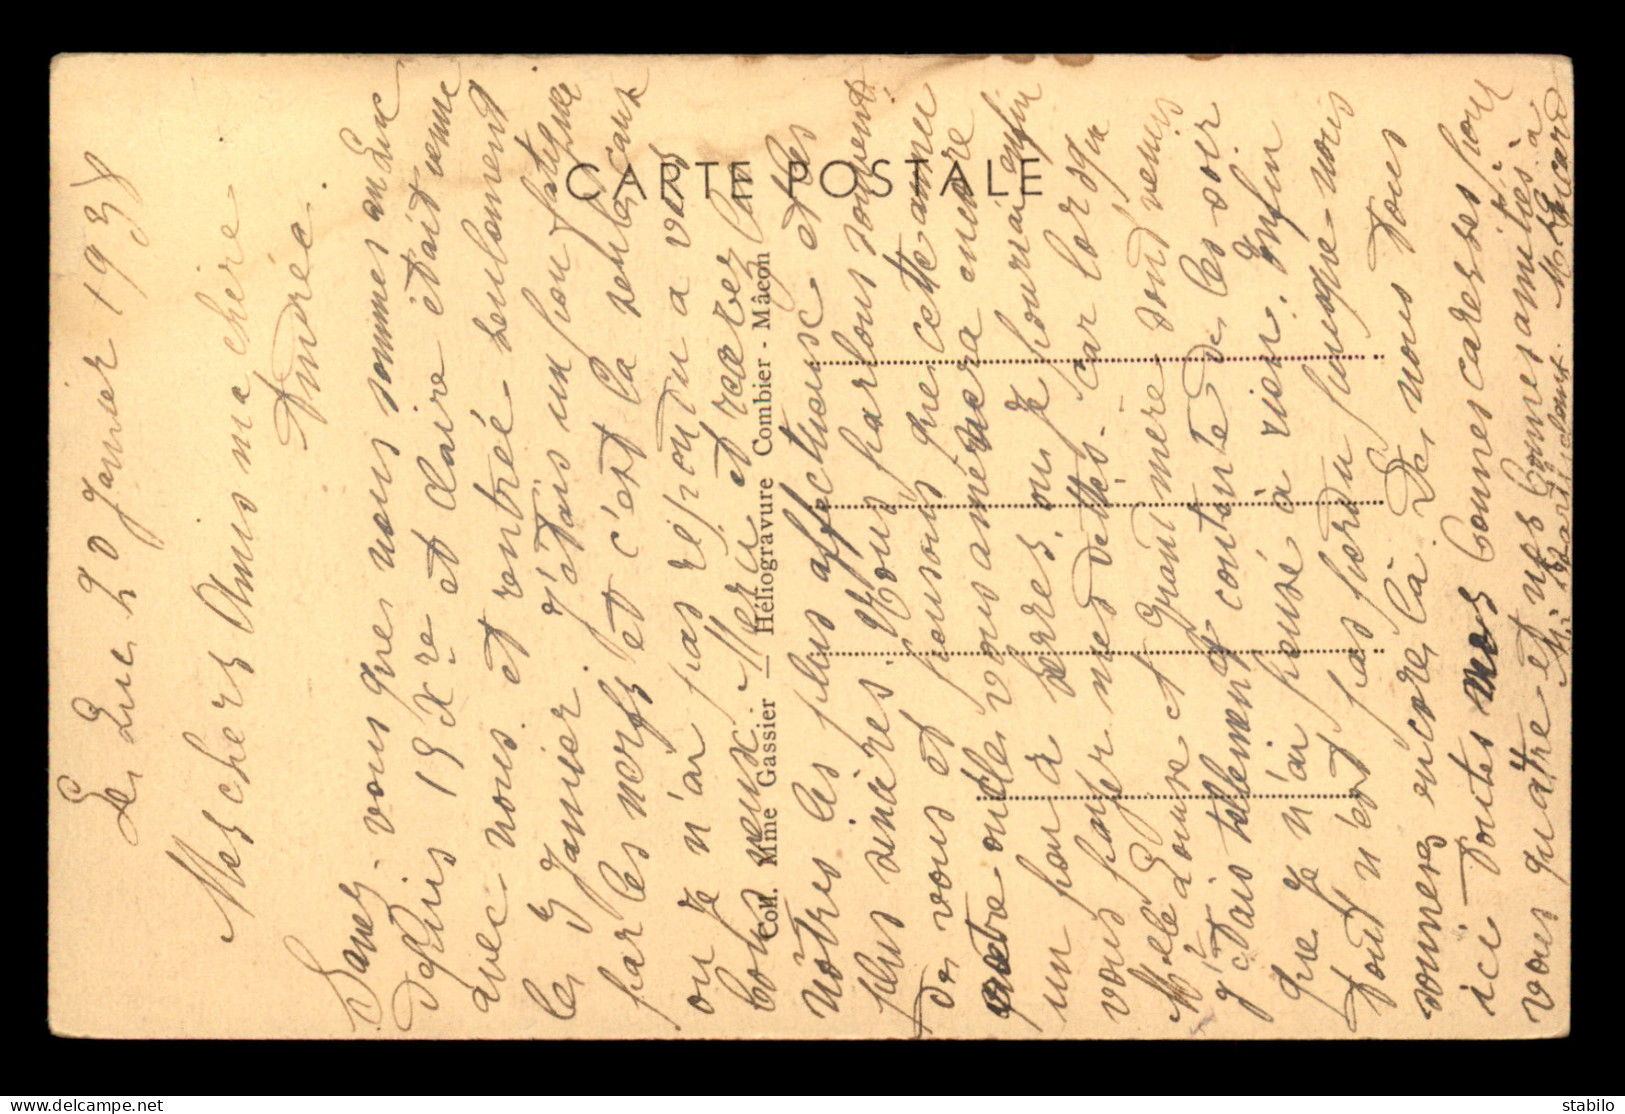 Le Luc 20 Janvier 1938
Mes chers Amis ma chère
Andrée.
Savez-vous que nous sommes au Luc
depuis 15 Xre et Claire était venue
avec nous et rentrée seulement
le 3 Janvier. J'étais un peu fatiguée
par les nerfs et c'est la seule cause
ou je n'ai pas répondu a vos
bons vœux. Merci et recevez les
nôtres les plus affectueuse et les
plus sincères. Nous parlons souvent
de vous et pensons que cette année
votre oncle vous amènera encore
un peu a ou je pourrai enfin
vous payer mes dettes. Car lorsque
Melle Louise et Grand mère sont venus
j'étais tellement contente de les voir
que je n'ai pensé à rien. Enfin
tout n'est pas perdu puisque nous
sommes encore là. De nous tous
ici toutes nos bonnes caresses pour
vous quatre et nos bonnes amitiés à
M Ricard
CARTE POSTALE
Coll. Mme Gassier — Héliogravure Combier - Mâcon
stabilo